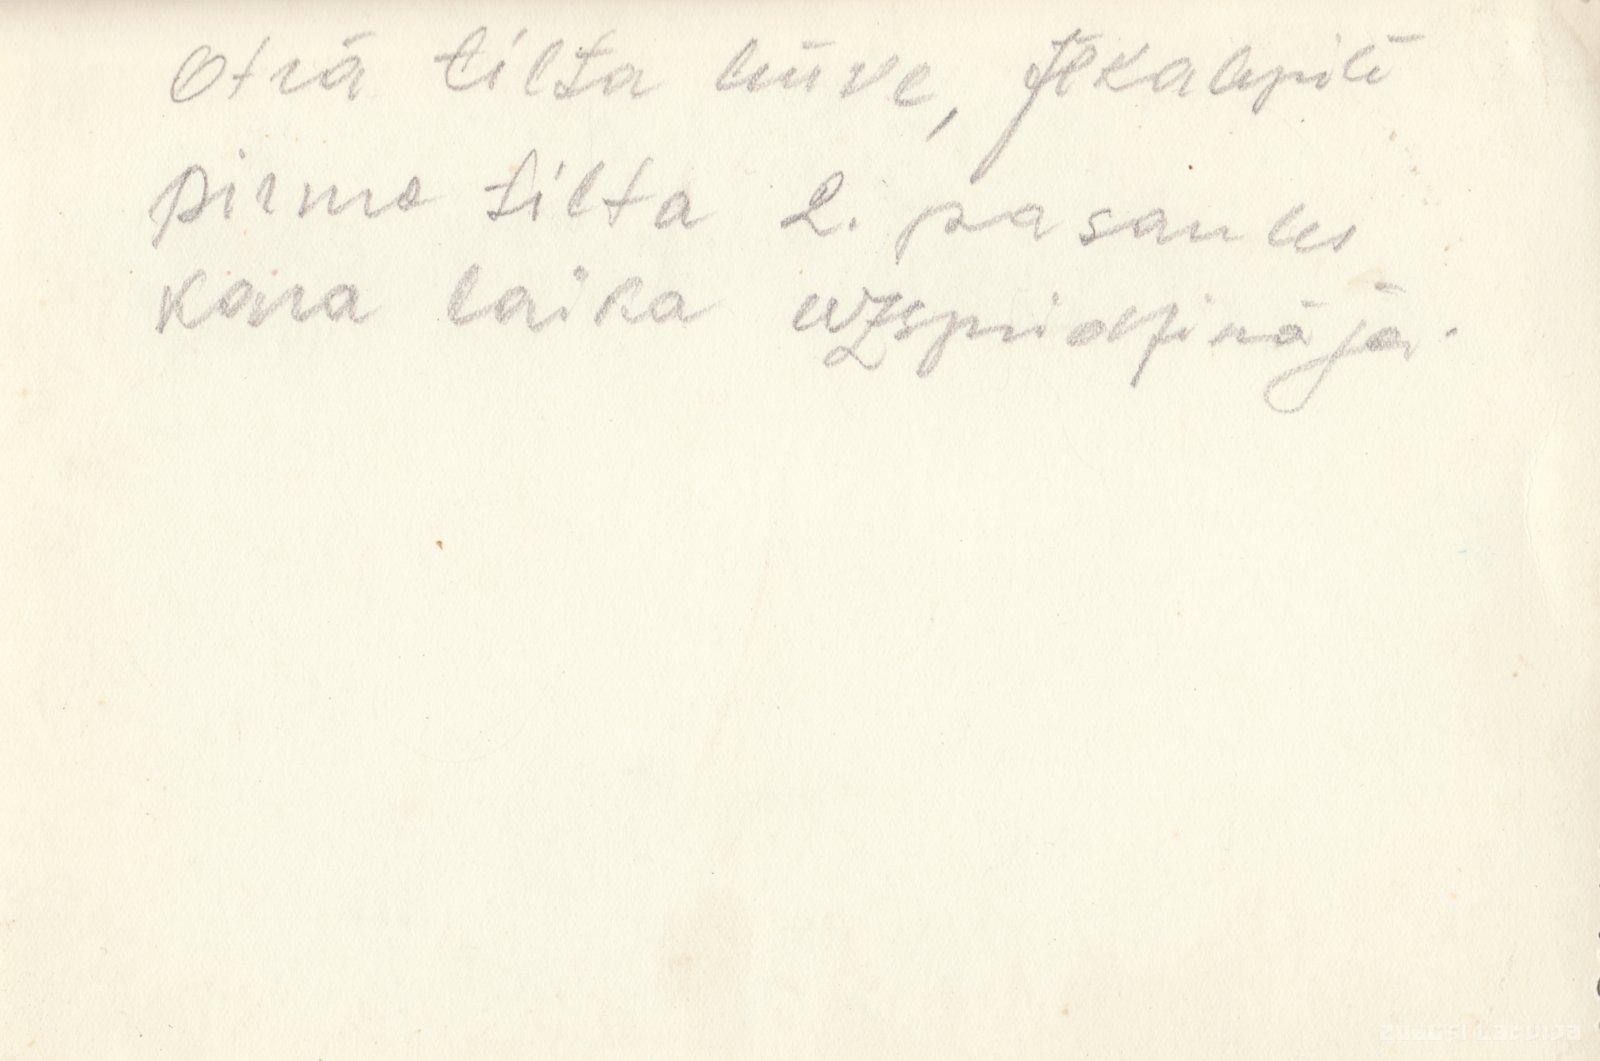 Otrā tilta būve, Jēkabpilī
pirmo tilta 2. pasaules
kara laika uzspridzināja.
zudusi Latvija